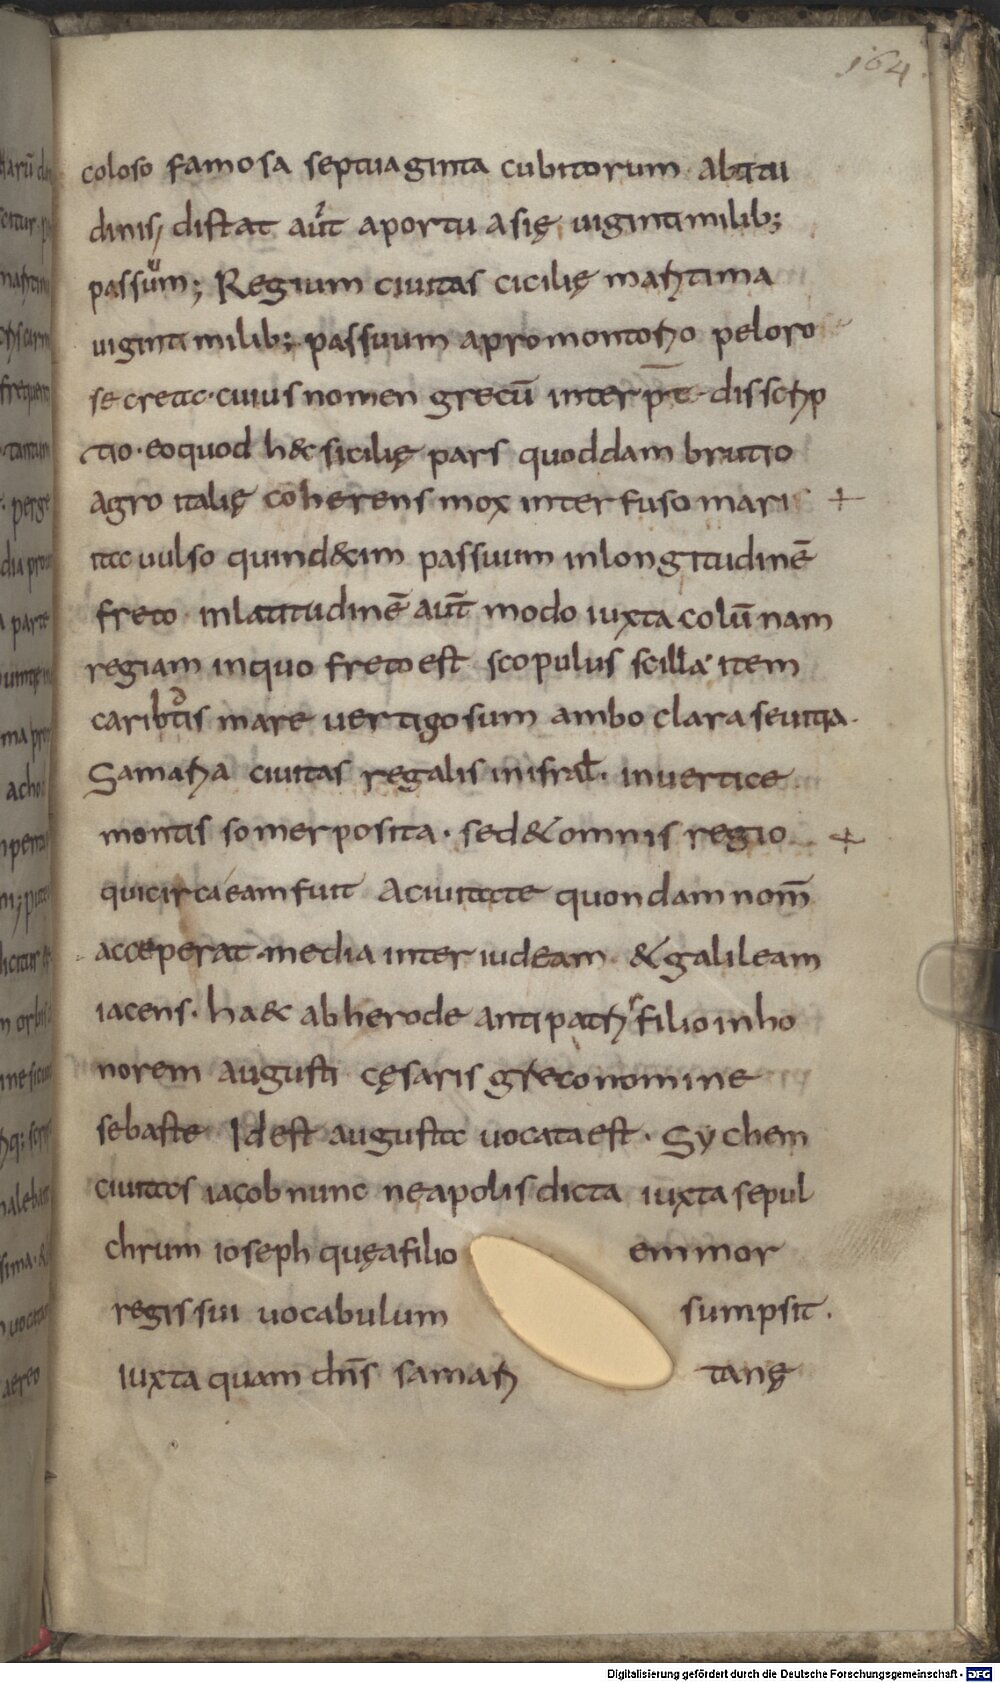 164
coloso famosa septuaginta cubitorum altitu
dinis, distat aut̄ aportu asię uigintimilib;
passuum; Regium ciuitas cicilię maritima
uigintimilib; passuum apromontorio peloro
secreta·cuius nomen grecū interp̄t· disscrip
tio·eoquod h& sicilię pars quoddam brutio
agro italię coherens mox interfuso mari
ita uulso quind&im passuum inlongitudinē
freto inlatitudinē aut̄ modo iuxta colūnam
regiam inquo freto est scopulus scilla· item
caribtis mare uertigosum ambo clara seuitia·
Samaria ciuitas regalis inisrał· inuertice
montis somer posita· sed & omnis regio
quicircaeam fuit Aciuitate quondam nom̄
acceperat·media inter iudeam & galileam
iacens· ha& abherode antipatri filio inho
norem augusti cęsaris greconomine
sebaste Idest augusta uocataest· Sychem
ciuitas iacob nunc neapolis dicta iuxta sepul
chrum ioseph quęafilio emmor
regis sui uocabulum sumpsit·
Iuxta quam dn̄s samari tanę
Digitalisierung gefördert durch die Deutsche Forschungsgemeinschaft - DFG